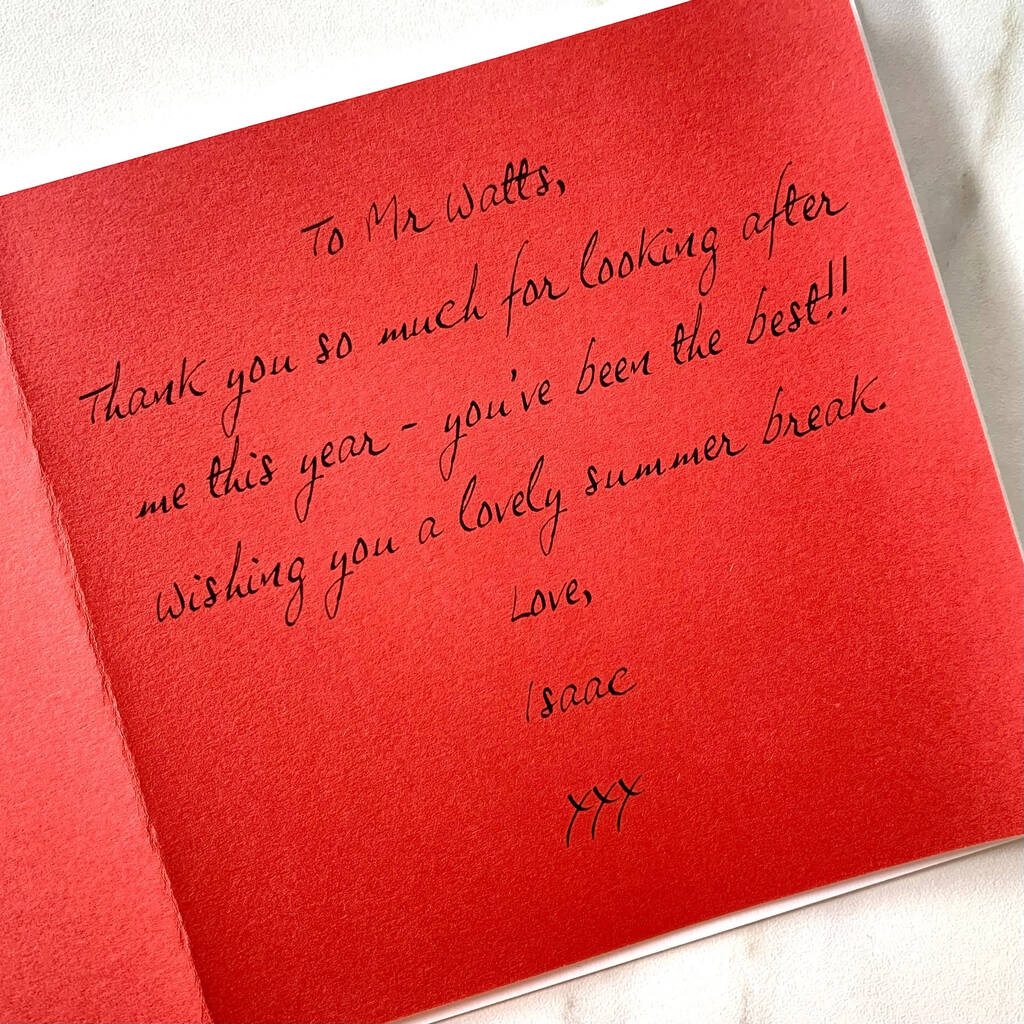 To Mr Watts,
Thank you so much for looking after
me this year - you've been the best!!
Wishing you a lovely summer break.
Love,
Isaac
xxx